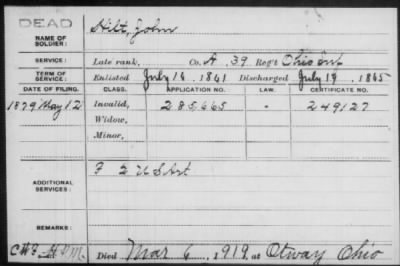 DEAD
NAME OF SOLDIER: Hilt, John
SERVICE: Late rank, Co. A, 39 Reg't Ohio Inf
TERM OF SERVICE: Enlisted July 16, 1861 Discharged July 19, 1865
DATE OF FILING. CLASS. APPLICATION NO. LAW. CERTIFICATE NO.
1879 May 12 Invalid, 285665 249127
Widow,
Minor,
ADDITIONAL SERVICES: F 2 US Art
REMARKS:
Died Mar 6, 1919, at Otway Ohio